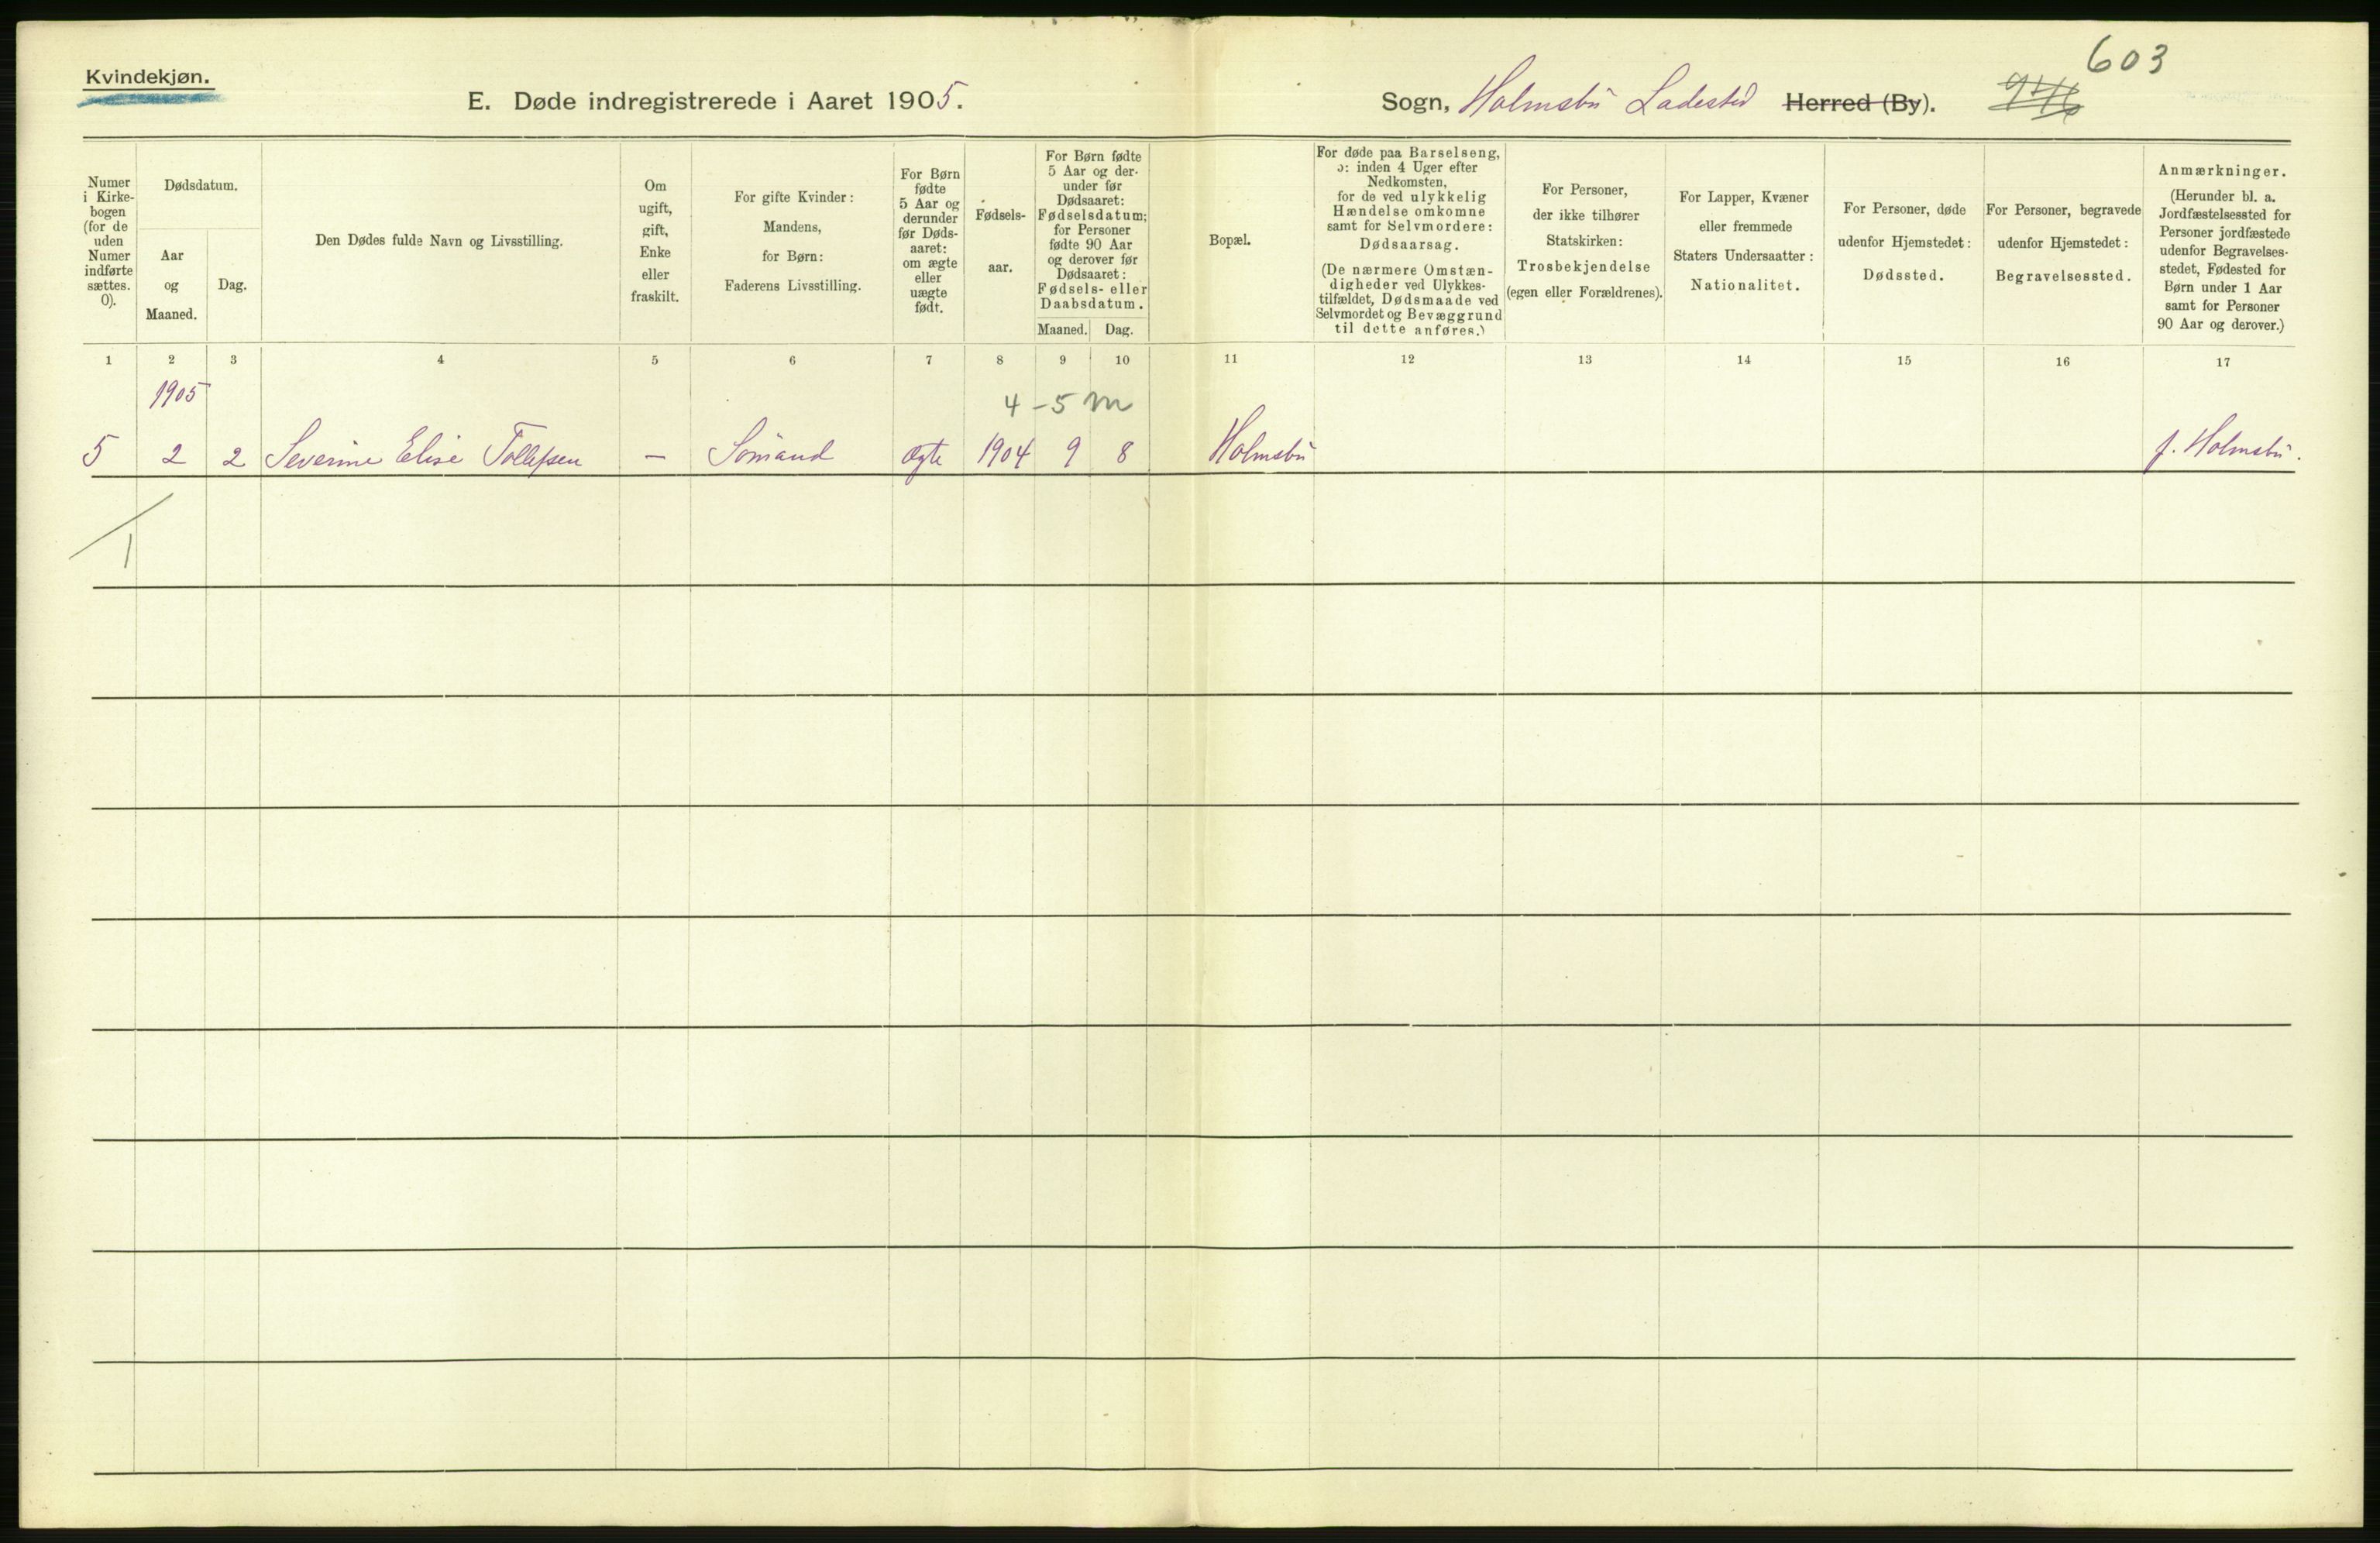 Kvindekjøn.
603
E. Døde indregistrerede i Aaret 1905.
Sogn, Holmsbu Ladested Herred (By).
Numer
i Kirke-
bogen
(for de
uden
Numer
indførte
sættes.
0).
Dødsdatum.
Aar
og
Maaned.
Dag.
Den Dødes fulde Navn og Livsstilling.
Om
ugift,
gift,
Enke
eller
fraskilt.
For gifte Kvinder:
Mandens,
for Børn:
Faderens Livsstilling.
For Børn
fødte
5 Aar og
derunder
før Døds-
aaret:
om ægte
eller
uægte
født.
Fødsels-
aar.
For Børn fødte
5 Aar og der-
under før
Dødsaaret:
Fødselsdatum;
for Personer
fødte 90 Aar
og derover før
Dødsaaret:
Fødsels- eller
Daabsdatum.
Maaned.
Dag.
Bopæl.
For døde paa Barselseng,
ɔ: inden 4 Uger efter
Nedkomsten,
for de ved ulykkelig
Hændelse omkomne
samt for Selvmordere:
Dødsaarsag.
(De nærmere Omstæn-
digheder ved Ulykkes-
tilfældet, Dødsmaade ved
Selvmordet og Bevæggrund
til dette anføres.)
For Personer,
der ikke tilhører
Statskirken:
Trosbekjendelse
(egen eller Forældrenes).
For Lapper, Kvæner
eller fremmede
Staters Undersaatter:
Nationalitet.
For Personer, døde
udenfor Hjemstedet:
Dødssted.
For Personer, begravede
udenfor Hjemstedet:
Begravelsessted.
Anmærkninger.
(Herunder bl. a.
Jordfæstelsessted for
Personer jordfæstede
udenfor Begravelses-
stedet, Fødested for
Børn under 1 Aar
samt for Personer
90 Aar og derover.)
1 2 3 4 5 6 7 8 9 10 11 12 13 14 15 16 17
1905
4-5 m
5 2 2 Severine Elise Tollefsen — Sömand Ægte 1904 9 8 Holmsbu f. Holmsbu.
1